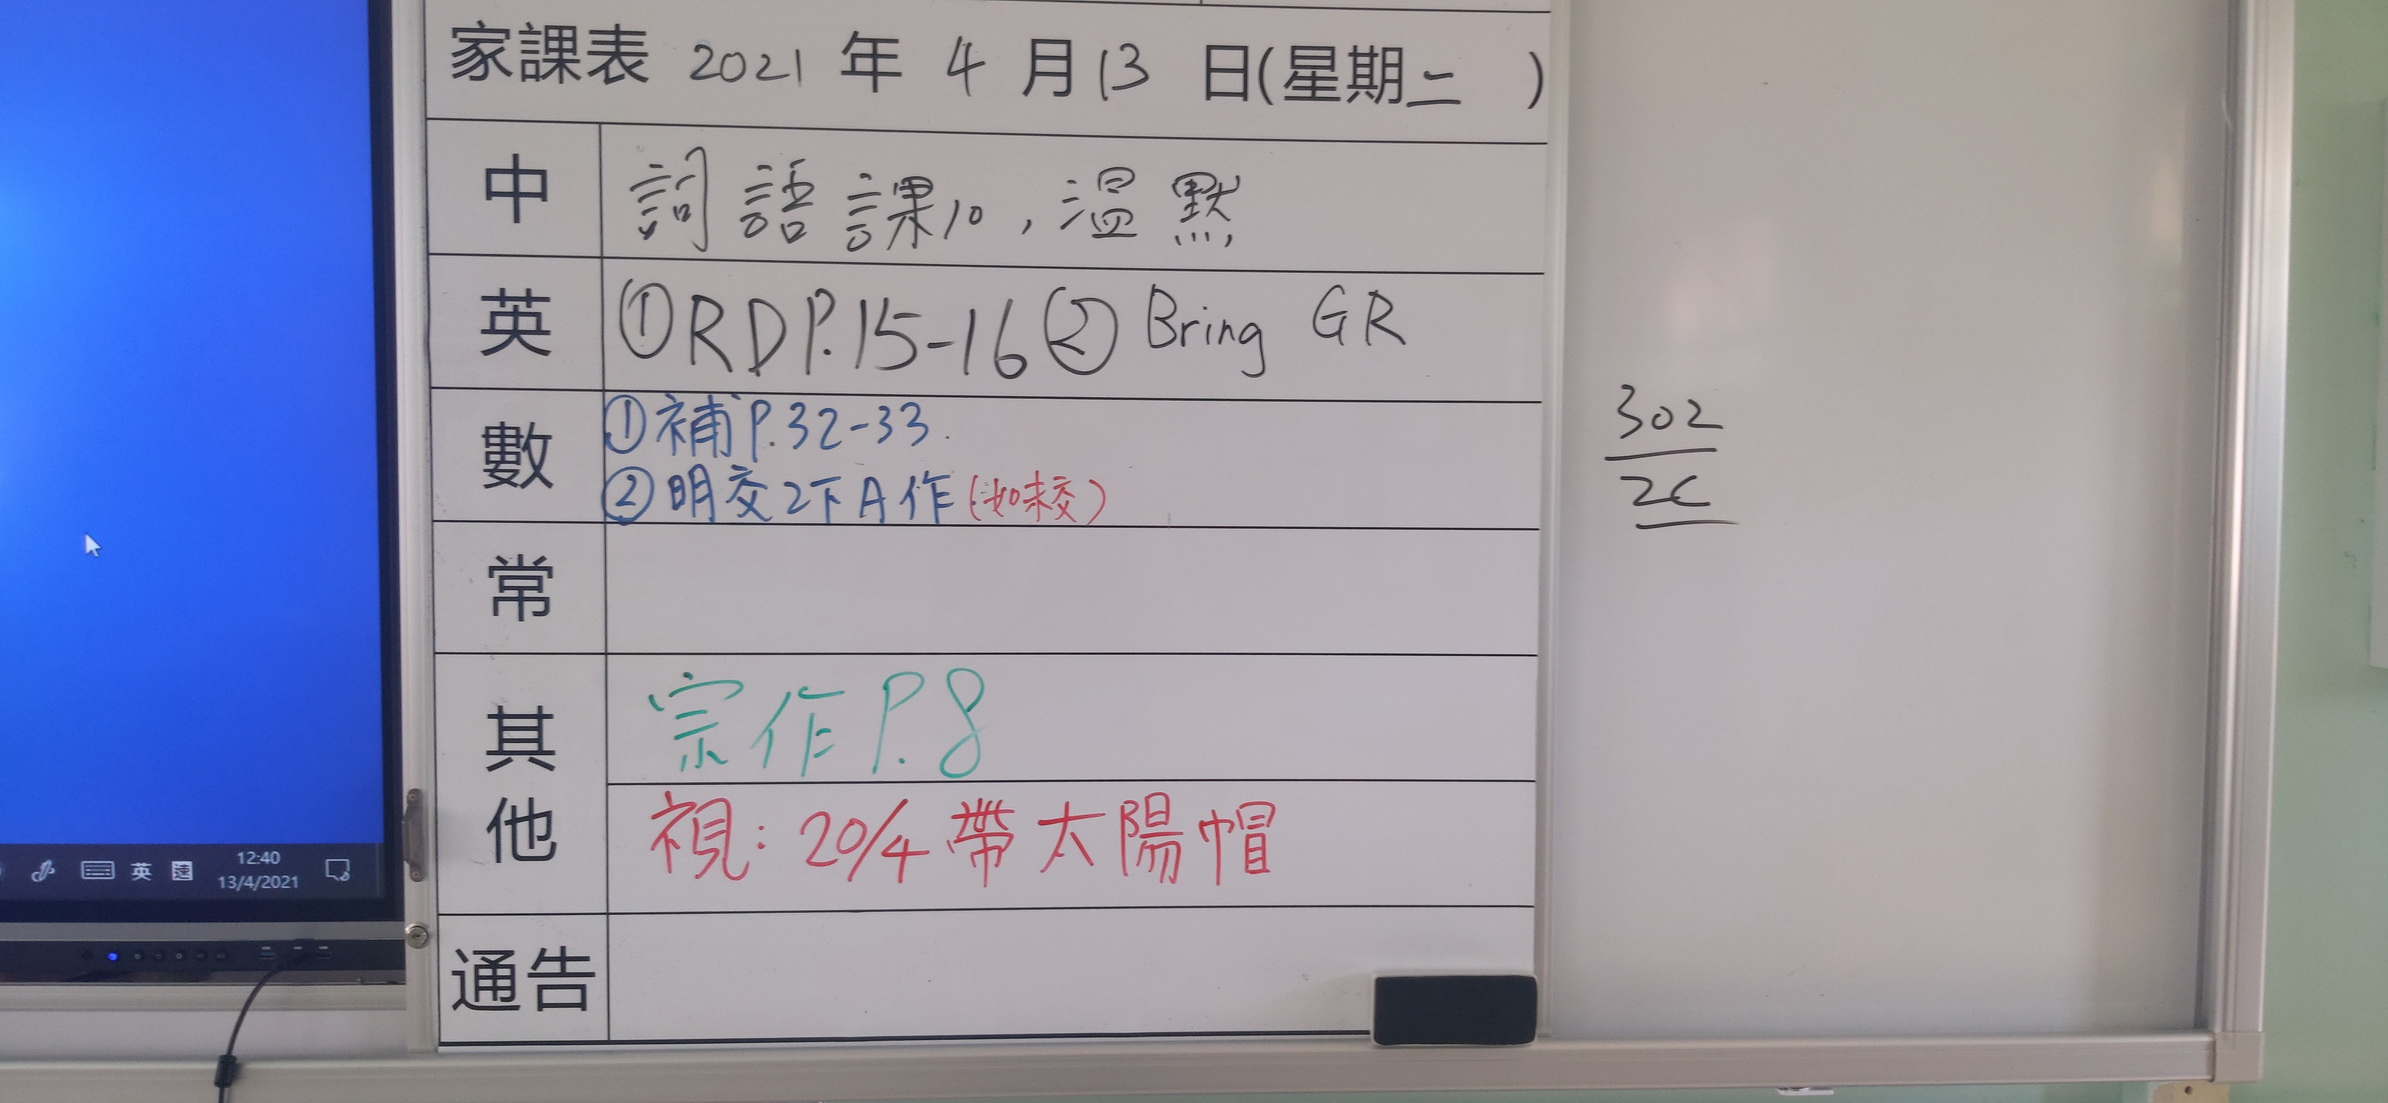 家課表 2021 年 4 月 13 日(星期二 )
中 詞語課10,溫默
英 ①RDP.15-16②Bring GR
數 ①補P.32-33.
②明交2下A作(如未交)
常
其他 宗作P.8
視:20/4帶太陽帽
通告
302
2C
英 速 12:40
13/4/2021